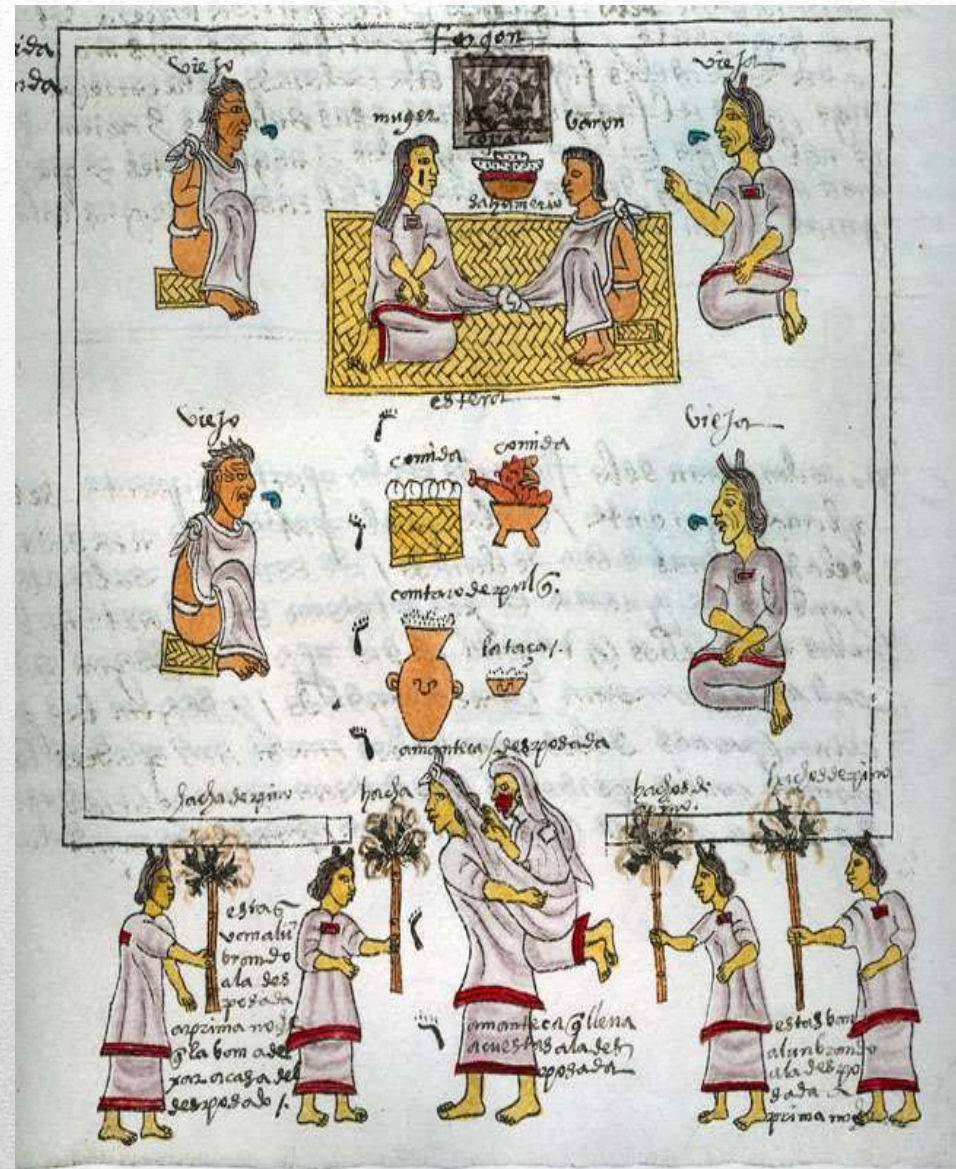 fogon
viejo
vieja
muger
baron
sahumerio
estera
viejo
vieja
comida
comida
cantaro de pulq̄.
la taça /.
amanteca / desposada
hacha de pino
hacha
hachos de
pino.
hachos de pino
esta q̄
ben alū
brando
a la des
posada
a prima noche
q̄ la ban a de
xar a casa del
desposado /.
amanteca q̄ lleua
a cuestas a la des
posada
estas ban
alunbrando
a la despo
sada a
prima noche